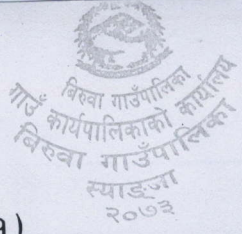 बिरुवा गाउँपालिका
गाउँ कार्यपालिकाको कार्यालय
बिरुवा गाउँपालिका
स्याङ्जा
२०७३